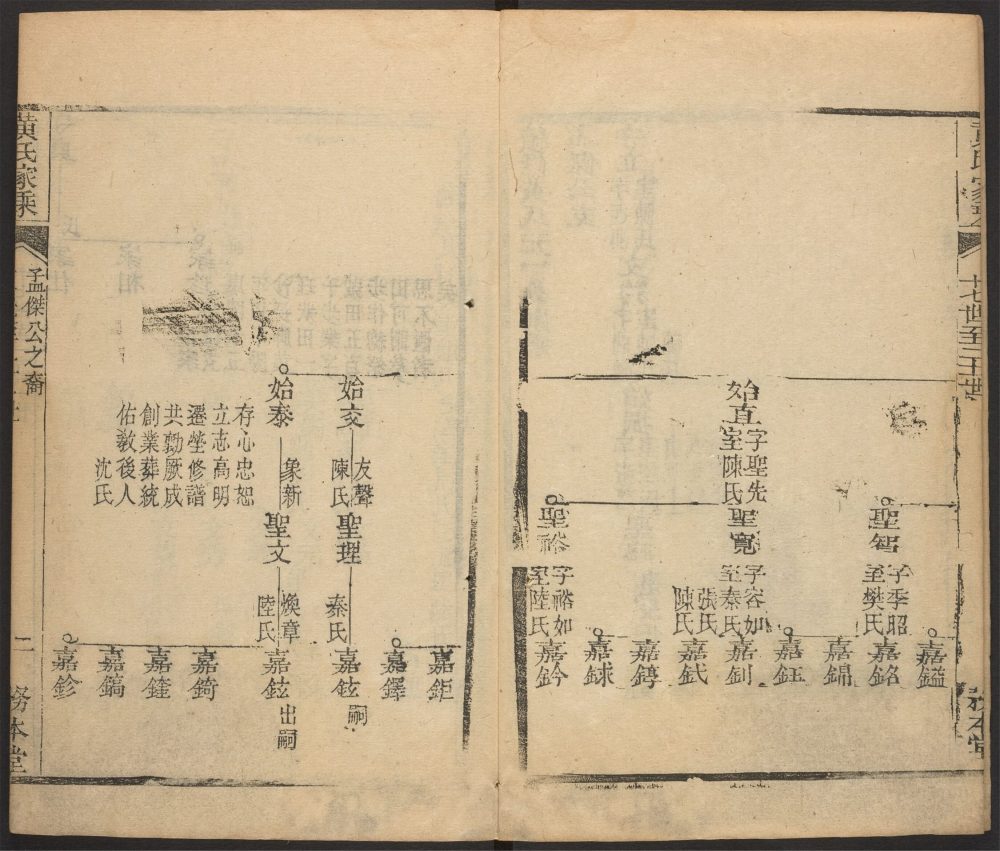 十七世至二十世
務本堂
嘉鎰
聖智
字季昭
室樊氏
嘉銘
嘉鍚
嘉鈺
始直
字聖先
室陳氏
聖寬
字容如
室秦氏
張氏
陳氏
嘉釗
嘉鉽
嘉鎛
嘉銶
聖裕
字裕如
室陸氏
嘉鈐
嘉鉅
嘉鐸
始交
友聲
陳氏
聖理
秦氏
嘉鉉
嗣
始泰
象新
存心忠恕
立志高明
遷塋修譜
共勷厥成
創業葬統
佑教後人
沈氏
聖文
煥章
陸氏
嘉鉉
出嗣
嘉錡
嘉鍷
嘉鎬
嘉鉁
黃氏家乘
孟傑公之裔
二
務本堂